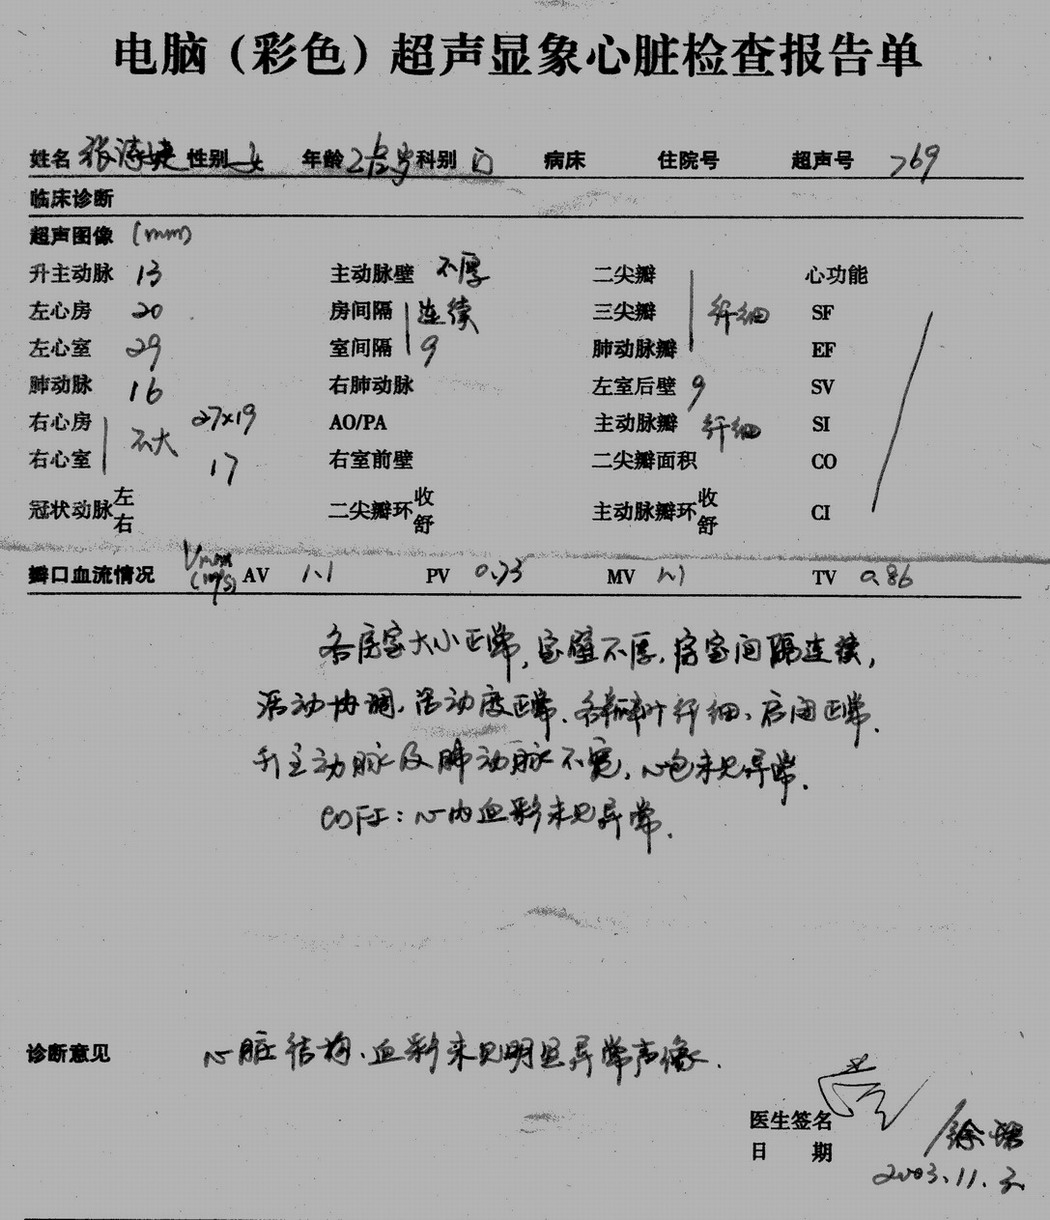 电脑（彩色）超声显象心脏检查报告单
姓名 张 婕 性别 女 年龄 2 岁 科别 门 病床 住院号 超声号 769
临床诊断
超声图像 (mm)
升主动脉 13 主动脉壁 不厚 二尖瓣 心功能
左心房 20 房间隔 连续 三尖瓣 纤细 SF
左心室 29 室间隔 9 肺动脉瓣 EF
肺动脉 16 右肺动脉 左室后壁 9 SV
右心房 不大 27×19 AO/PA 主动脉瓣 纤细 SI
右心室 17 右室前壁 二尖瓣面积 CO
冠状动脉 左 右 二尖瓣环 收 舒 主动脉瓣环 收 舒 CI
瓣口血流情况 Vmax (m/s) AV 1.1 PV 0.73 MV 1.1 TV 0.86
各房室大小正常，室壁不厚，房室间隔连续，
活动协调，活动度正常，各瓣叶纤细，启闭正常，
升主动脉及肺动脉不宽，心包未见异常。
CDFI：心内血彩未见异常。
诊断意见 心脏结构、血彩未见明显异常声像。
医生签名 徐
日 期 2003.11.3